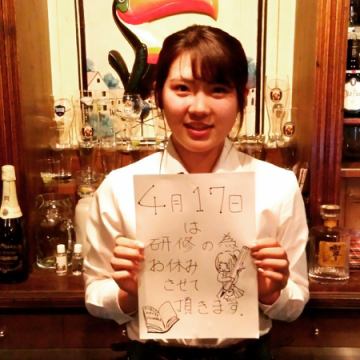 4月17日
は
研修の為
お休み
させて
頂きます.